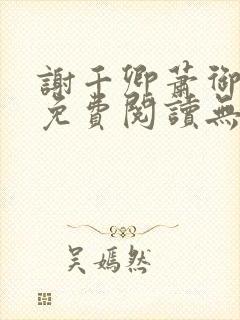 謝千卿蕭御
免費閱讀無
吳嫣然